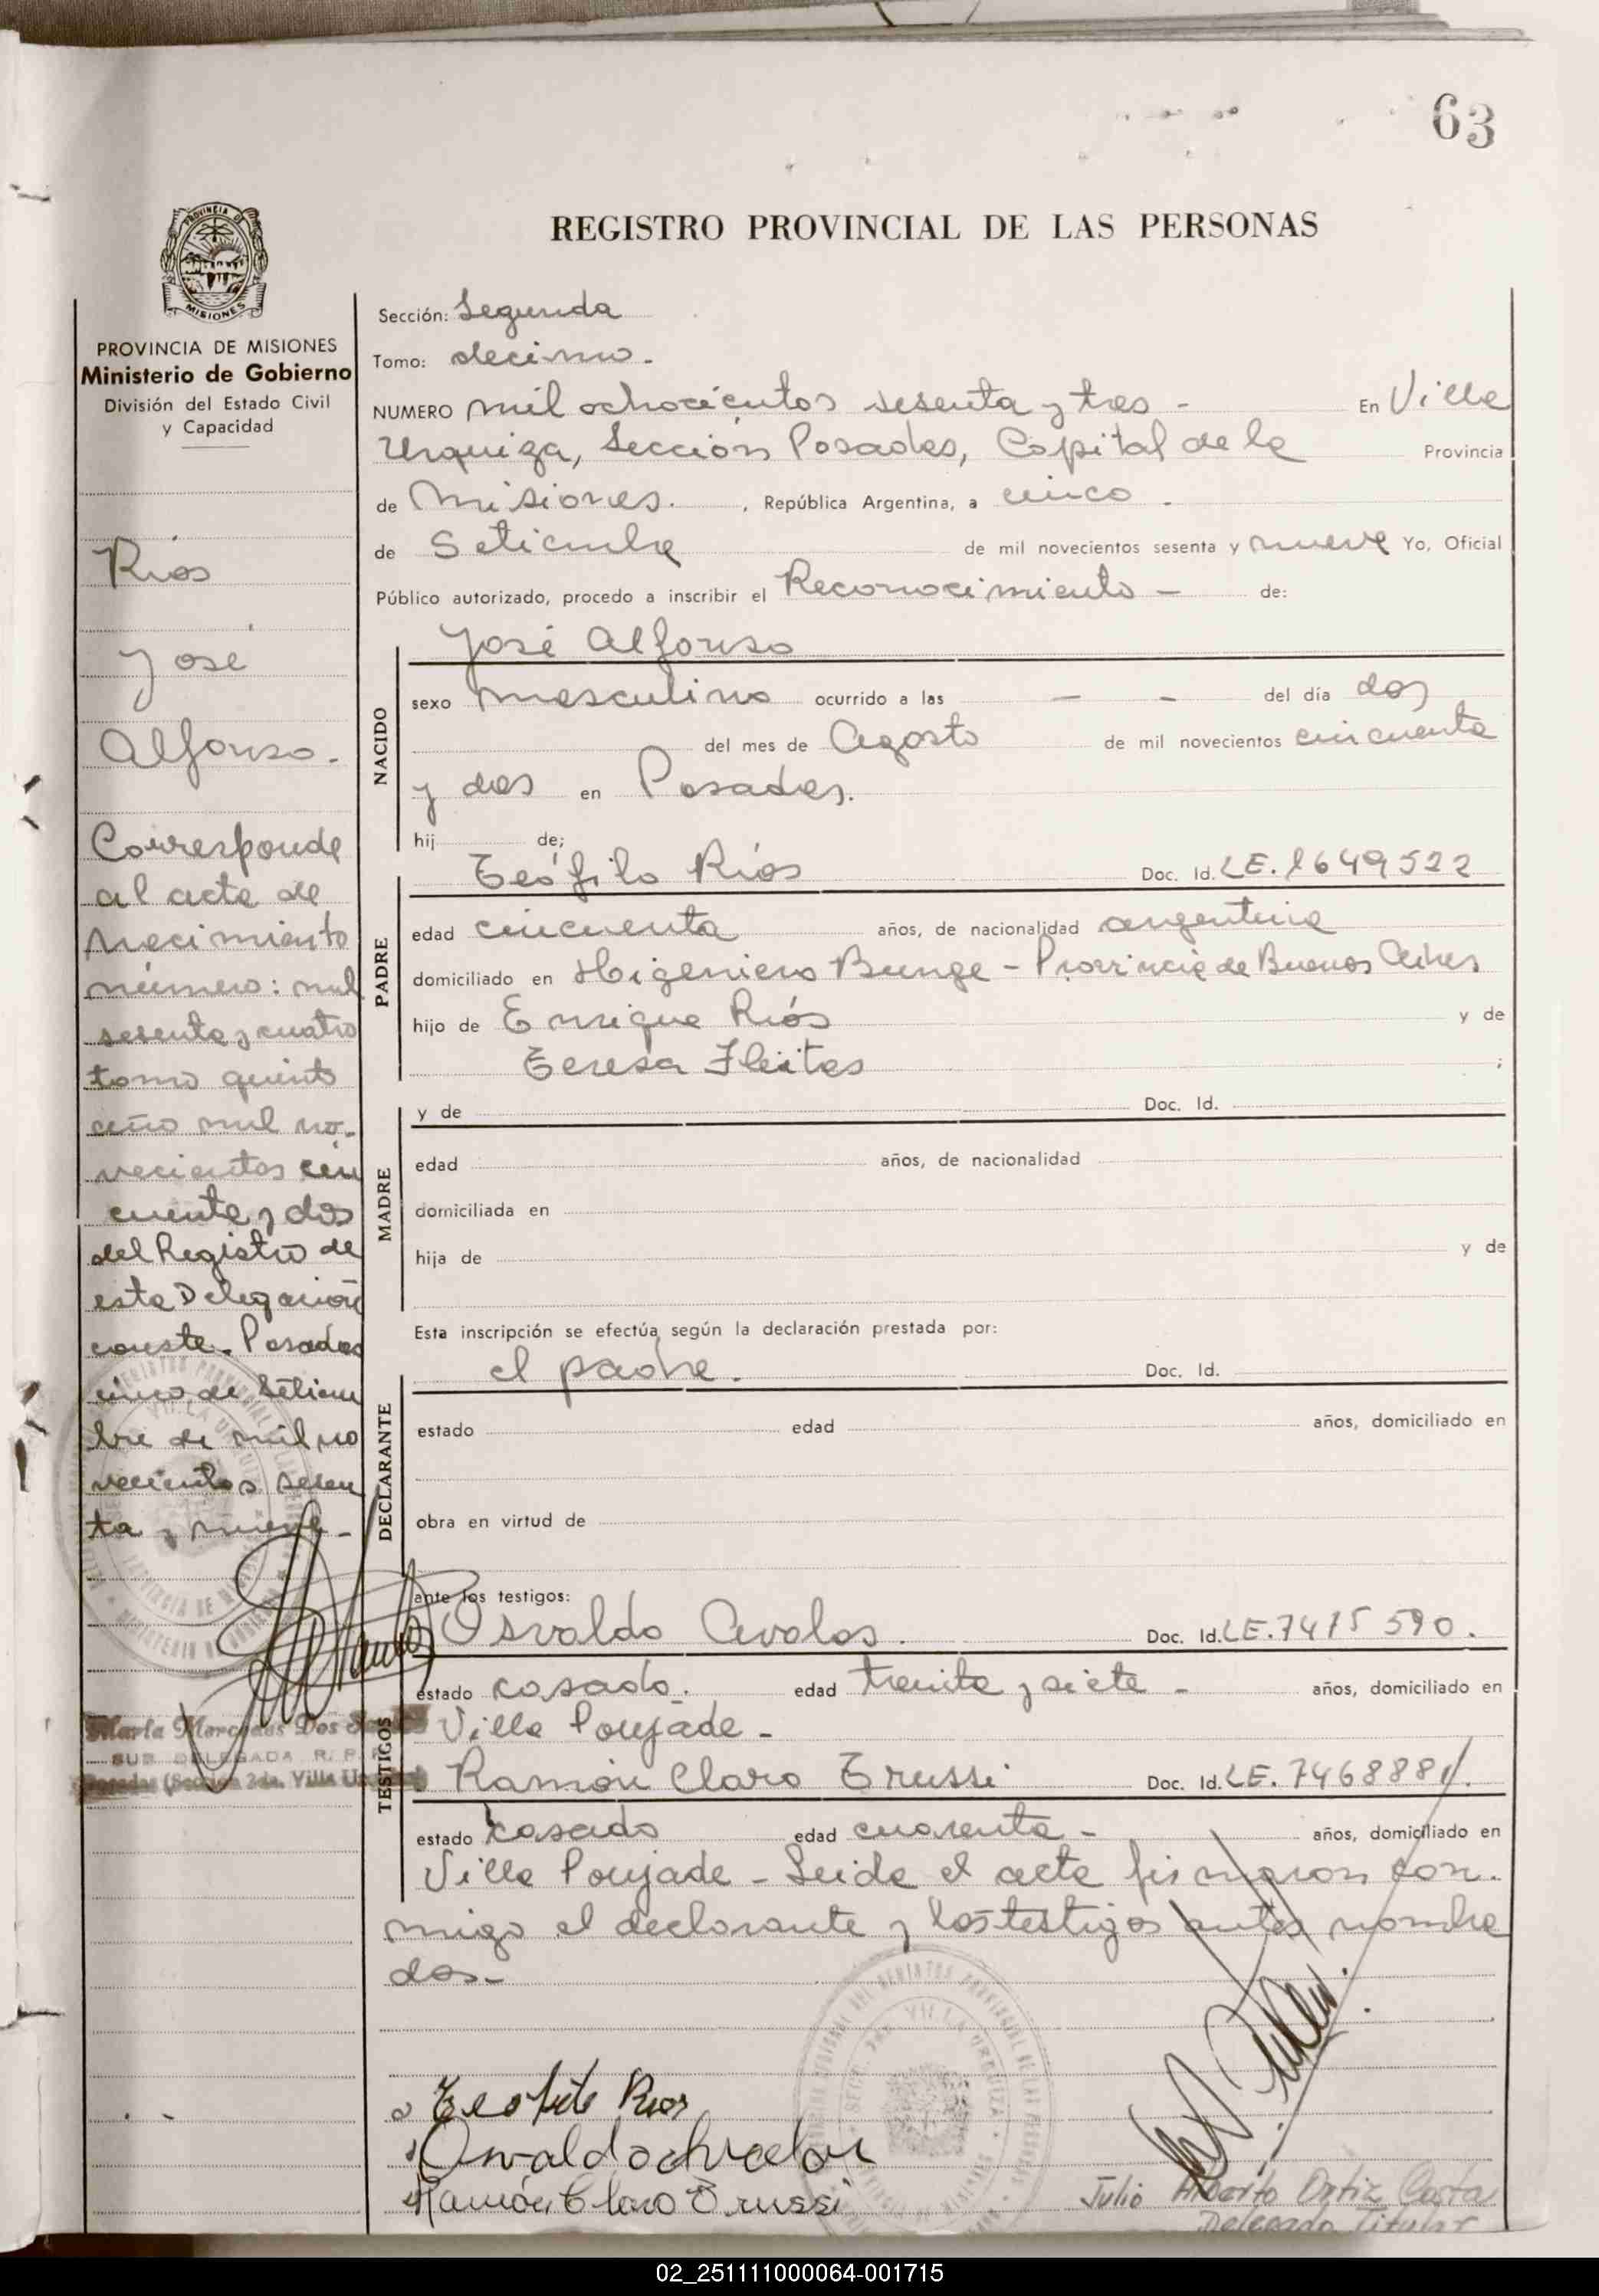 63
REGISTRO PROVINCIAL DE LAS PERSONAS
PROVINCIA DE MISIONES
Ministerio de Gobierno
División del Estado Civil
y Capacidad
Ríos
José
Alfonso.
Corresponde
al acta de
Nacimiento
número: mil
sesenta y cuatro
tomo quinto
año mil no-
vecientos cin
cuenta y dos
del Registro de
esta Delegación
conste. Posadas
cinco de Setiem
bre de mil no
vecientos sesen
ta y nueve-
Marta Mercedes Dos
SUB DELEGADA R. P. P.
Posadas (Sección 2da. Villa
Sección: Segunda
Tomo: decimo.
NUMERO mil ochocientos sesenta y tres - En Villa
Urquiza, Sección Posadas, Capital de la Provincia
de Misiones. , República Argentina, a cinco .
de Setiembre de mil novecientos sesenta y nueve Yo, Oficial
Público autorizado, procedo a inscribir el Reconocimiento - de:
José Alfonso
NACIDO
sexo masculino ocurrido a las - - del día dos
del mes de Agosto de mil novecientos cincuenta
y dos en Posadas.
hij de;
PADRE
Teófilo Ríos Doc. Id. LE. 1649522
edad cincuenta años, de nacionalidad argentina
domiciliado en Higeniero Bunge - Provincia de Buenos Aires
hijo de Enrique Ríos y de
Teresa Fleitas ;
MADRE
y de Doc. Id.
edad años, de nacionalidad
domiciliada en
hija de y de
Esta inscripción se efectúa según la declaración prestada por:
DECLARANTE
el padre. Doc. Id.
estado edad años, domiciliado en
obra en virtud de
ante los testigos:
TESTIGOS
Osvaldo Avalos. Doc. Id. LE. 7475 590.
estado casado. edad treinta y siete - años, domiciliado en
Villa Poujade -
Ramón Claro Trussi Doc. Id. LE. 7468881.
estado casado edad cuarenta - años, domiciliado en
Villa Poujade - Leida el acta firmaron con-
migo el declarante y los testigos antes nombra
dos-
Teofilo Rios
Osvaldo Avalos
Ramón Claro Trussi
Julio Alberto Ortiz Costa
Delegado Titular
02_251111000064-001715